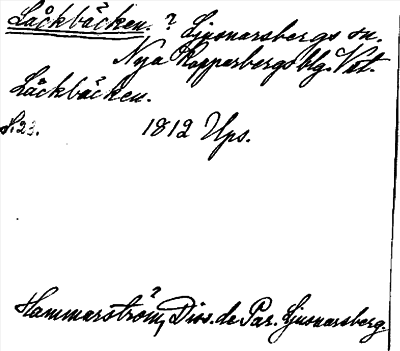 Låckbäcken. ? Ljusnarsbergs sn.
Nya Kopparbergs blg. Vstm.
Låckbäcken.
S. 23. 1812 Ups.
Hammarström, ? Diss. de Par. Ljusnarsberg.